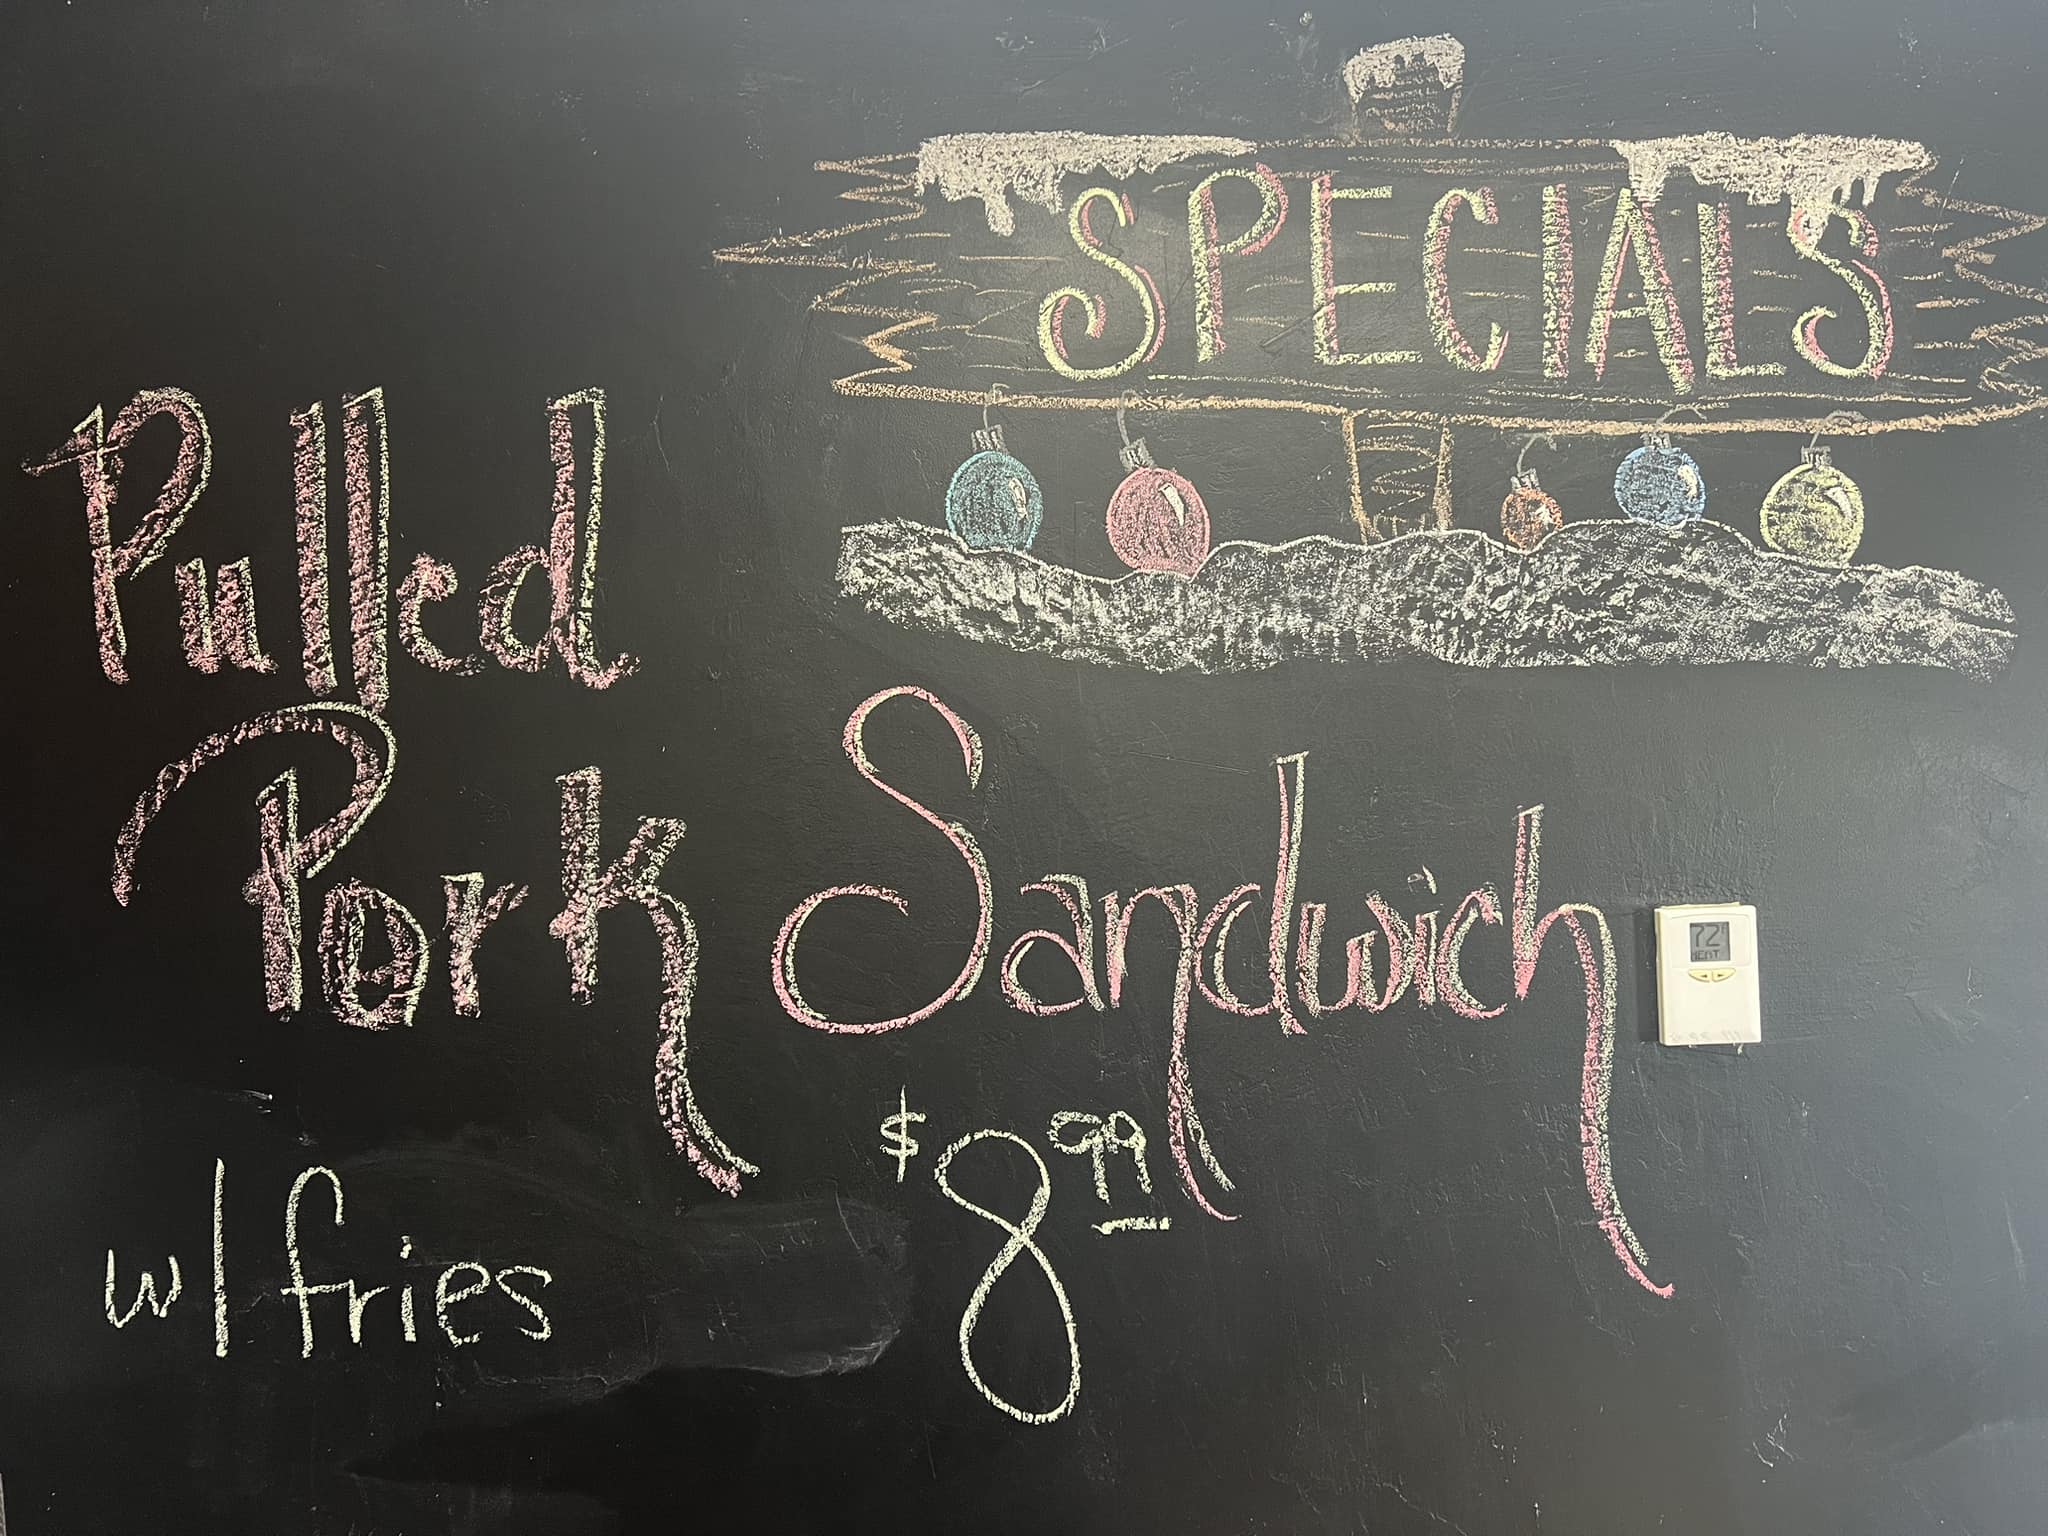 SPECIALS
Pulled
Pork Sandwich
72°
HEAT
$8.99
w/ fries